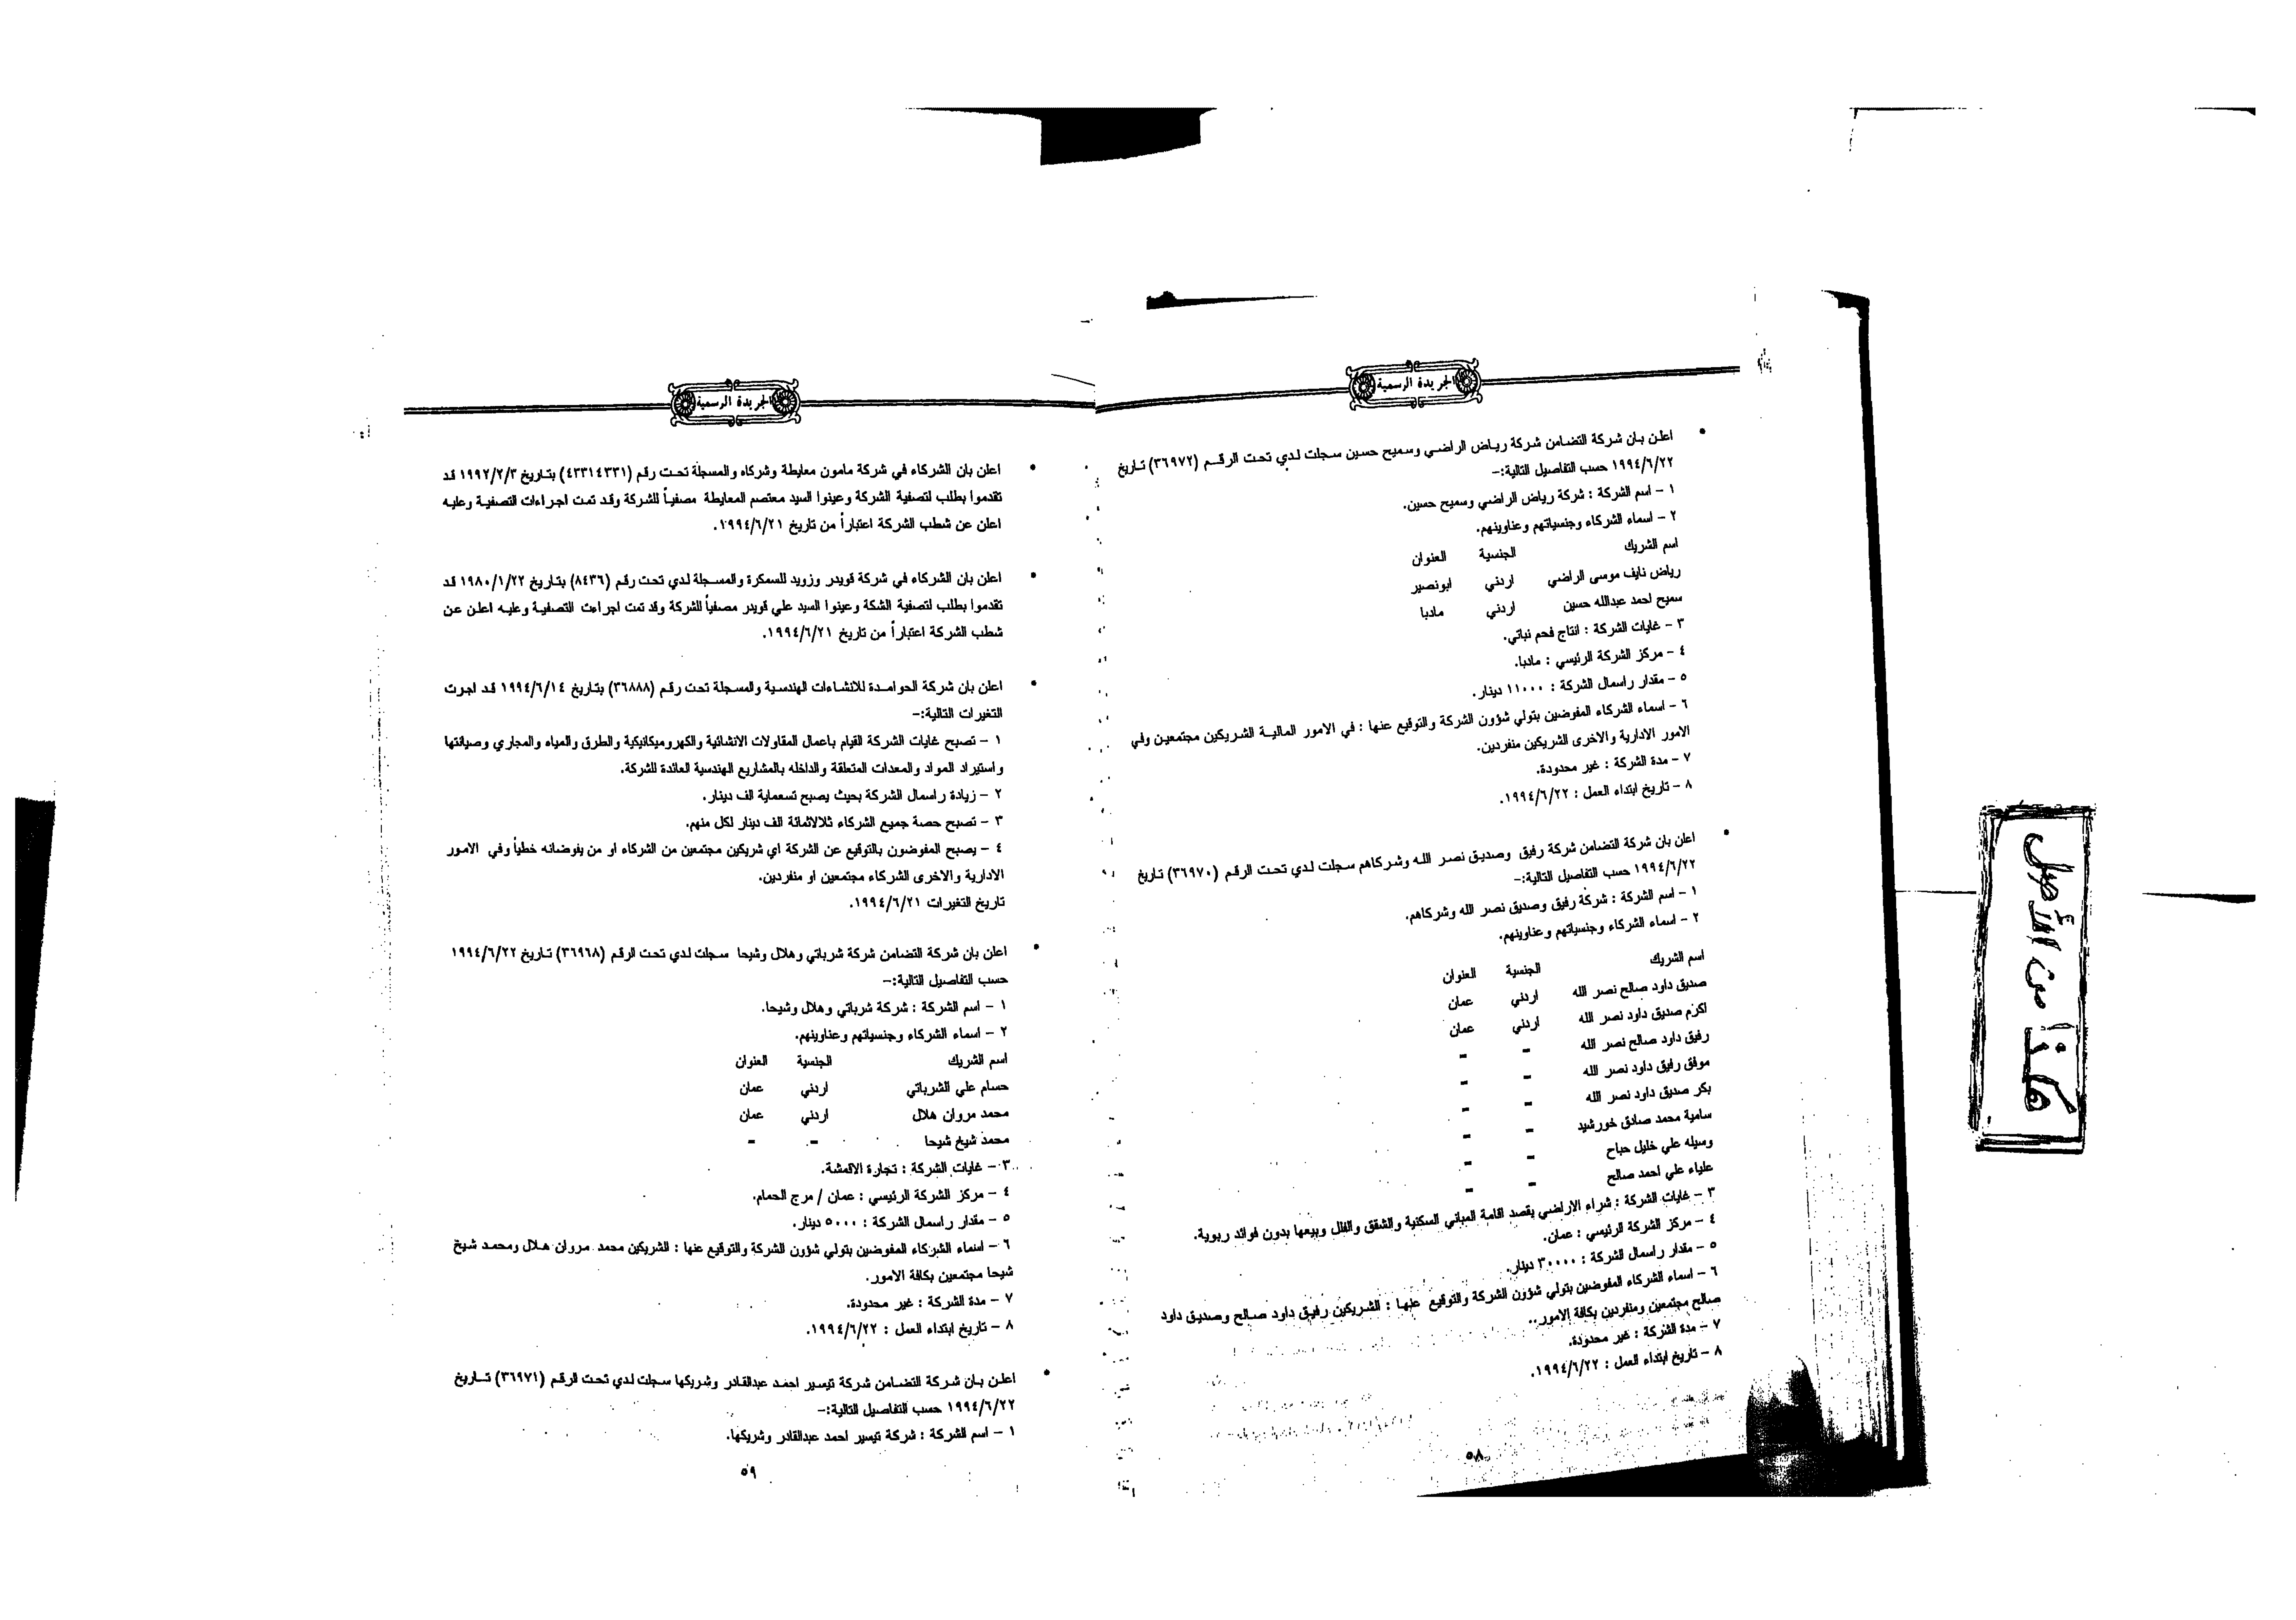 الجريدة الرسمية
• اعلن بان شركة التضامن شركة رياض الراضي وسميح حسين سجلت لدي تحت الرقم (٣٦٩٧٢) تاريخ
١٩٩٤/٦/٢٢ حسب التفاصيل التالية:–
١ – اسم الشركة : شركة رياض الراضي وسميح حسين.
٢ – اسماء الشركاء وجنسياتهم وعناوينهم.
اسم الشريك الجنسية العنوان
رياض نايف موسى الراضي اردني ابونصير
سميح احمد عبدالله حسين اردني مادبا
٣ – غايات الشركة : انتاج فحم نباتي.
٤ – مركز الشركة الرئيسي : مادبا.
٥ – مقدار راسمال الشركة : ١١٠٠٠ دينار.
٦ – اسماء الشركاء المفوضين بتولي شؤون الشركة والتوقيع عنها : في الامور المالية الشريكين مجتمعين وفي
الامور الادارية والاخرى الشريكين منفردين.
٧ – مدة الشركة : غير محدودة.
٨ – تاريخ ابتداء العمل : ١٩٩٤/٦/٢٢.
• اعلن بان شركة التضامن شركة رفيق وصديق نصر الله وشركاهم سجلت لدي تحت الرقم (٣٦٩٧٠) تاريخ
١٩٩٤/٦/٢٢ حسب التفاصيل التالية:–
١ – اسم الشركة : شركة رفيق وصديق نصر الله وشركاهم.
٢ – اسماء الشركاء وجنسياتهم وعناوينهم.
اسم الشريك الجنسية العنوان
صديق داود صالح نصر الله اردني عمان
اكرم صديق داود نصر الله اردني عمان
رفيق داود صالح نصر الله – –
موفق رفيق داود نصر الله – –
بكر صديق داود نصر الله – –
سامية محمد صادق خورشيد – –
وسيله علي خليل حباح – –
علياء علي احمد صالح – –
٣ – غايات الشركة : شراء الاراضي بقصد اقامة المباني السكنية والشقق والفلل وبيعها بدون فوائد ربوية.
٤ – مركز الشركة الرئيسي : عمان.
٥ – مقدار راسمال الشركة : ٣٠٠٠٠ دينار.
٦ – اسماء الشركاء المفوضين بتولي شؤون الشركة والتوقيع عنها : الشريكين رفيق داود صالح وصديق داود
صالح مجتمعين ومنفردين بكافة الامور..
٧ – مدة الشركة : غير محدودة.
٨ – تاريخ ابتداء العمل : ١٩٩٤/٦/٢٢.
٥٨
الجريدة الرسمية
• اعلن بان الشركاء في شركة مامون معايطة وشركاه والمسجلة تحت رقم (٤٣٣١٤٣٣١) بتاريخ ١٩٩٢/٢/٣ قد
تقدموا بطلب لتصفية الشركة وعينوا السيد معتصم المعايطة مصفياً للشركة وقد تمت اجراءات التصفية وعليه
اعلن عن شطب الشركة اعتباراً من تاريخ ١٩٩٤/٦/٢١.
• اعلن بان الشركاء في شركة قويدر وزويد للسمكرة والمسجلة لدي تحت رقم (٨٤٣٦) بتاريخ ١٩٨٠/١/٢٢ قد
تقدموا بطلب لتصفية الشكة وعينوا السيد علي قويدر مصفياً للشركة وقد تمت اجراءت التصفية وعليه اعلن عن
شطب الشركة اعتباراً من تاريخ ١٩٩٤/٦/٢١.
• اعلن بان شركة الحوامدة للانشاءات الهندسية والمسجلة تحت رقم (٣٦٨٨٨) بتاريخ ١٩٩٤/٦/١٤ قد اجرت
التغيرات التالية:–
١ – تصبح غايات الشركة القيام باعمال المقاولات الانشائية والكهروميكانيكية والطرق والمياه والمجاري وصيانتها
واستيراد المواد والمعدات المتعلقة والداخله بالمشاريع الهندسية العائدة للشركة.
٢ – زيادة راسمال الشركة بحيث يصبح تسعماية الف دينار.
٣ – تصبح حصة جميع الشركاء ثلالاثمائة الف دينار لكل منهم.
٤ – يصبح المفوضون بالتوقيع عن الشركة اي شريكين مجتمعين من الشركاء او من يفوضانه خطياً وفي الامور
الادارية والاخرى الشركاء مجتمعين او منفردين.
تاريخ التغيرات ١٩٩٤/٦/٢١.
• اعلن بان شركة التضامن شركة شرباتي وهلال وشيحا سجلت لدي تحت الرقم (٣٦٩٦٨) تاريخ ١٩٩٤/٦/٢٢
حسب التفاصيل التالية:–
١ – اسم الشركة : شركة شرباتي وهلال وشيحا.
٢ – اسماء الشركاء وجنسياتهم وعناوينهم.
اسم الشريك الجنسية العنوان
حسام علي الشرباتي اردني عمان
محمد مروان هلال اردني عمان
محمد شيخ شيحا – –
٣ – غايات الشركة : تجارة الاقمشة.
٤ – مركز الشركة الرئيسي : عمان / مرج الحمام.
٥ – مقدار راسمال الشركة : ٥٠٠٠ دينار.
٦ – اسماء الشركاء المفوضين بتولي شؤون الشركة والتوقيع عنها : الشريكين محمد مروان هلال ومحمد شيخ
شيحا مجتمعين بكافة الامور.
٧ – مدة الشركة : غير محدودة.
٨ – تاريخ ابتداء العمل : ١٩٩٤/٦/٢٢.
• اعلن بان شركة التضامن شركة تيسير احمد عبدالقادر وشريكها سجلت لدي تحت الرقم (٣٦٩٧١) تاريخ
١٩٩٤/٦/٢٢ حسب التفاصيل التالية:–
١ – اسم الشركة : شركة تيسير احمد عبدالقادر وشريكها.
٥٩
هكذا من الأصل